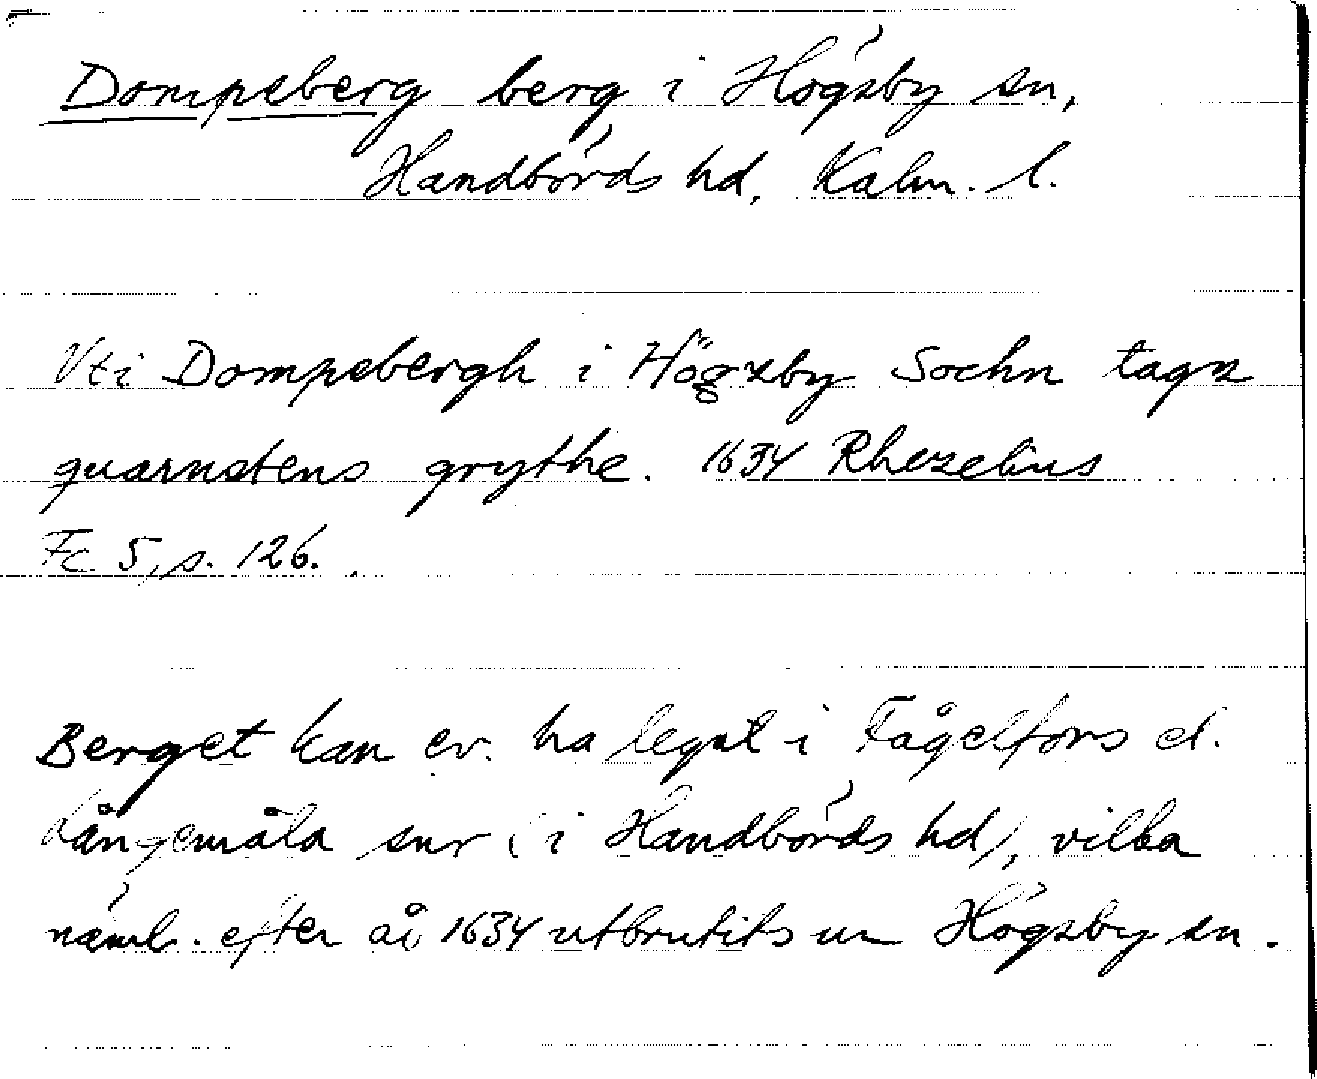 Dompeberg berg i Högsby sn,
Handbörds hd, Kalm. l.
Vti Dompebergh i Högzby Sochn tagz
quarnstens grythe. 1634 Rhezelius
Fc 5, s. 126.
Berget kan ev. ha legat i Fågelfors el.
Långemåla snr (i Handbörds hd), vilka
näml. efter år 1634 utbrutits ur Högsby sn.